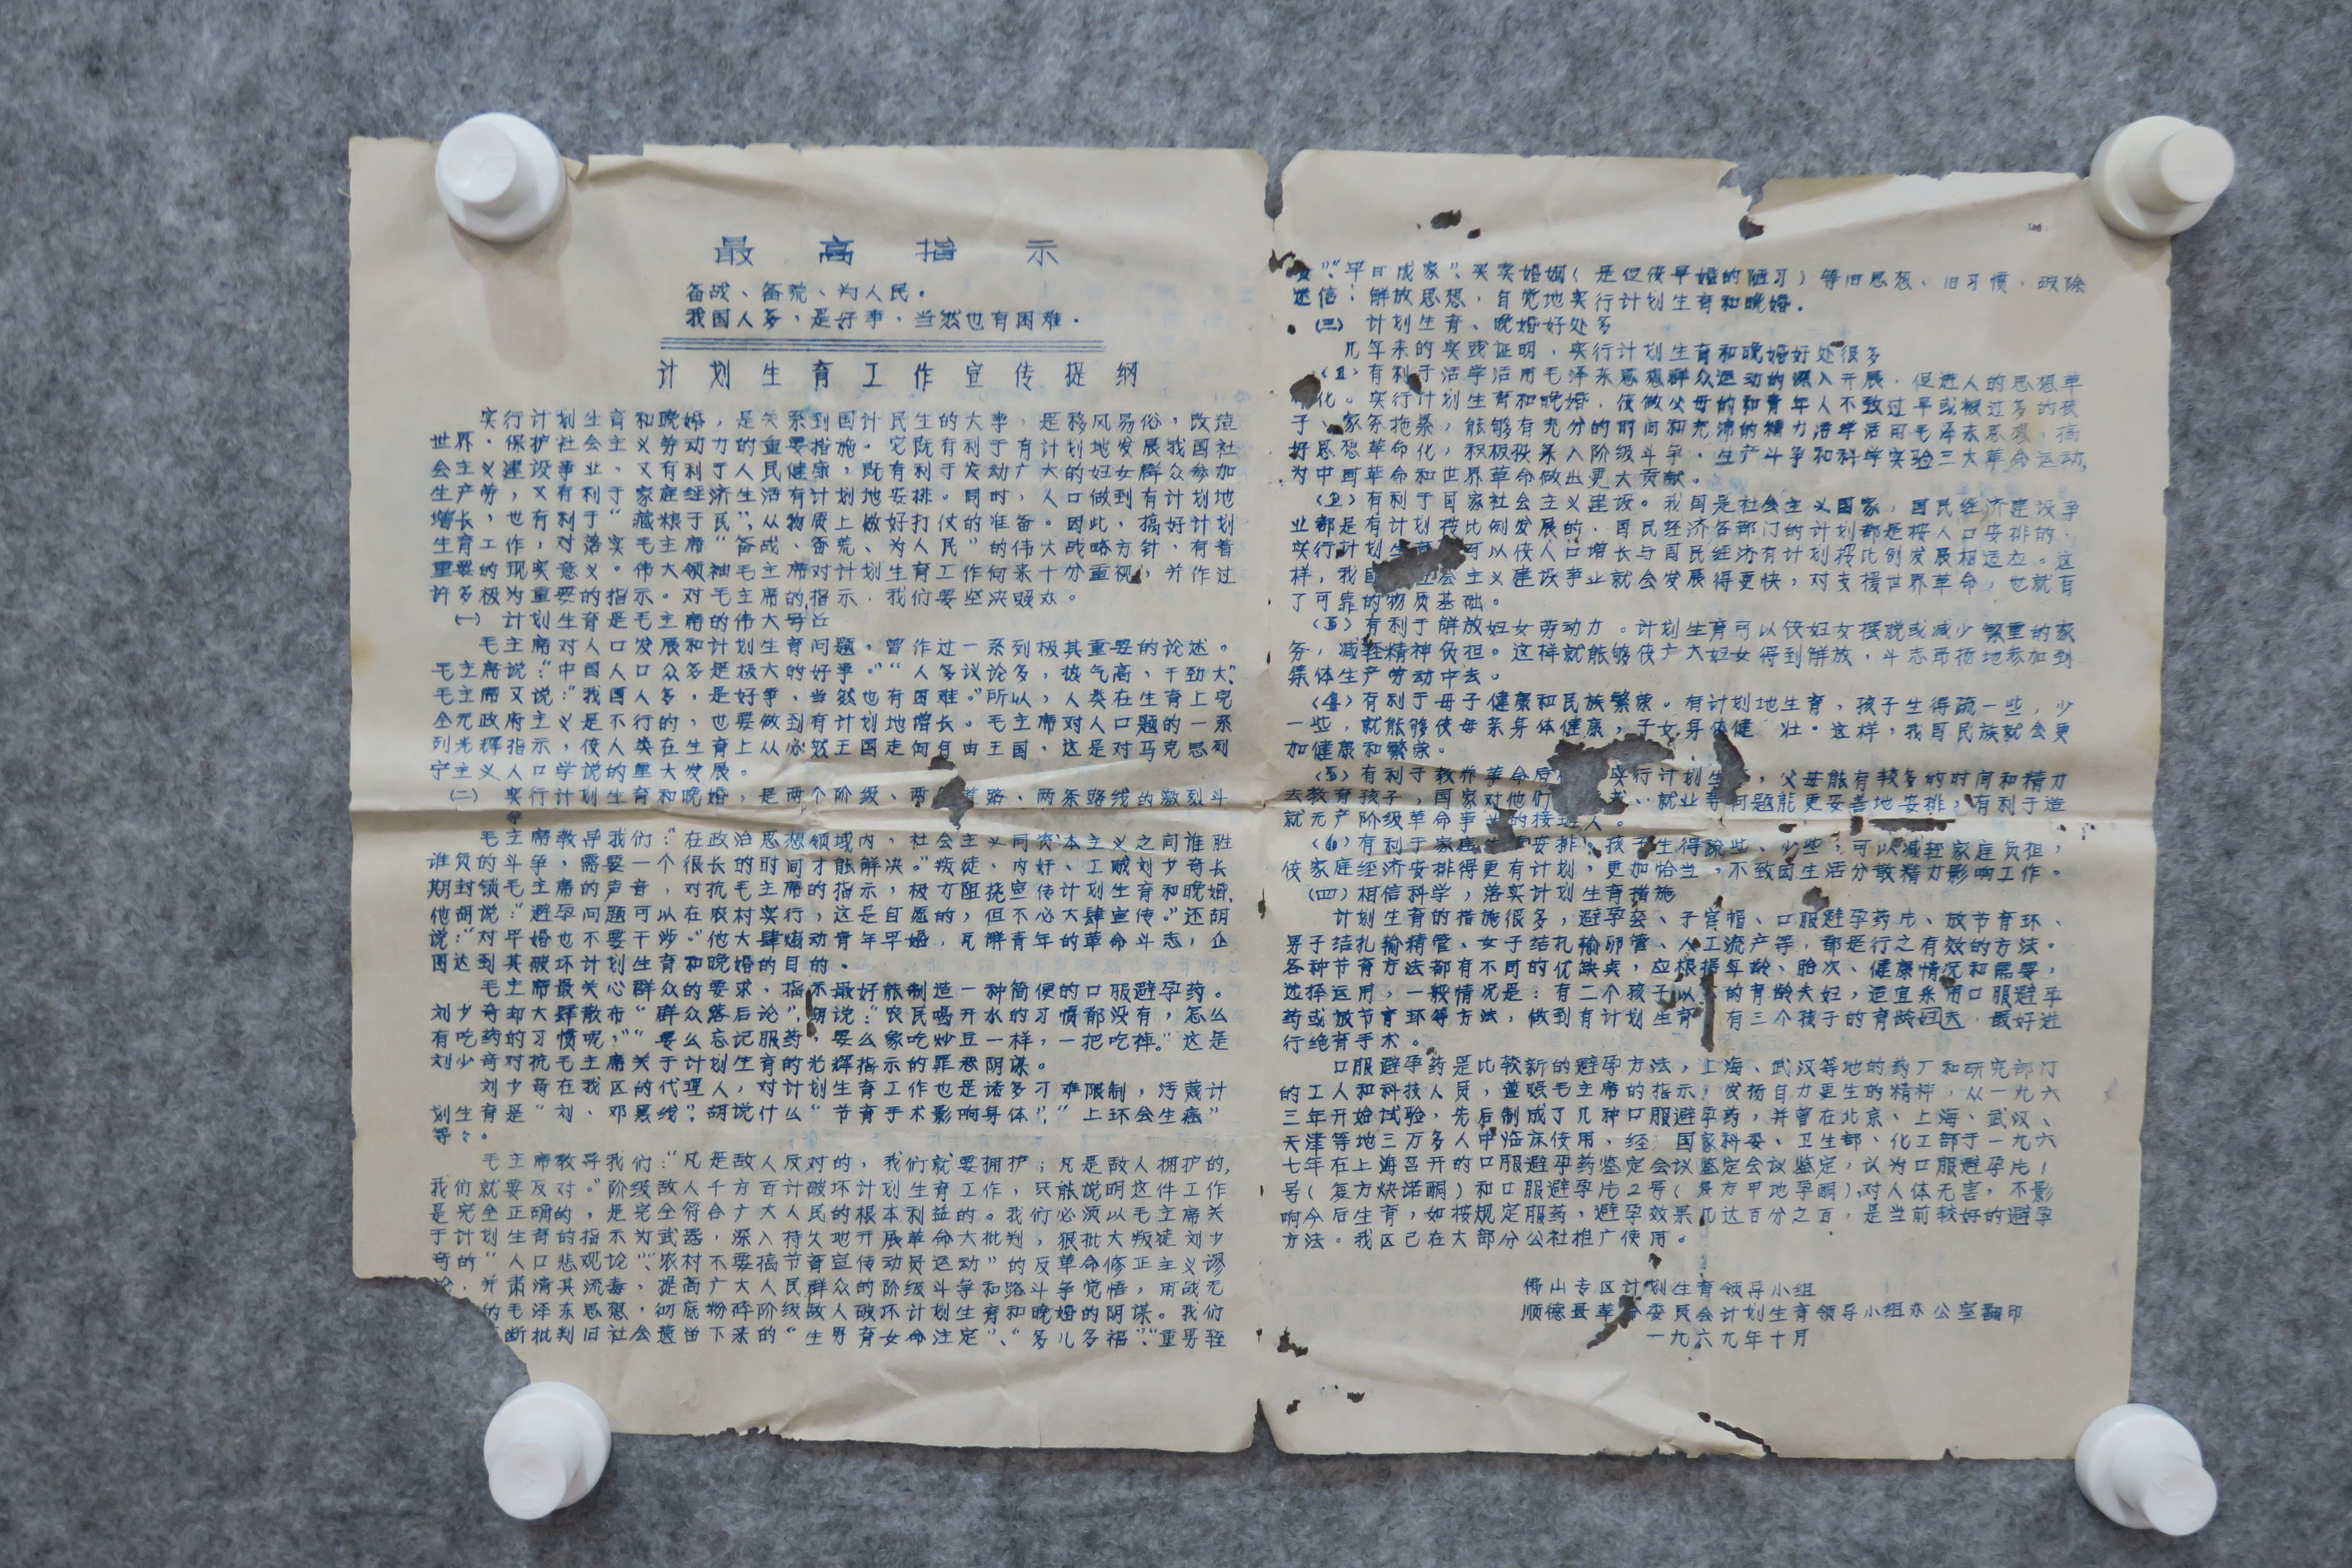 最高指示
备战、备荒、为人民。
我国人多，是好事，当然也有困难。
计划生育工作宣传提纲
实行计划生育和晚婚，是关系到国计民生的大事，是移风易俗，改造
世界，保护社会主义劳动力的重要措施。它既有利于有计划地发展我国社
会主义建设事业，又有利于人民健康，既有利于发动广大的妇女群众参加
生产劳，又有利于家庭经济生活有计划地安排。同时，人口做到有计划地
增长，也有利于“藏粮于民”，从物质上做好打仗的准备。因此，搞好计划
生育工作，对落实毛主席“备战、备荒、为人民”的伟大战略方针，有着
重要的现实意义。伟大领袖毛主席对计划生育工作向来十分重视，并作过
许多极为重要的指示。对毛主席的指示，我们要坚决照办。
(一) 计划生育是毛主席的伟大号召
毛主席对人口发展和计划生育问题，曾作过一系列极其重要的论述。
毛主席说：“中国人口众多是极大的好事。”“人多议论多，热气高，干劲大”。
毛主席又说：“我国人多，是好事，当然也有困难。”所以，人类在生育上完
全无政府主义是不行的，也要做到有计划地增长。毛主席对人口题的一系
列光辉指示，使人类在生育上从必然王国走向自由王国，这是对马克思列
宁主义人口学说的重大发展。
(二) 实行计划生育和晚婚，是两个阶级、两 道路、两条路线的激烈斗
争
毛主席教导我们：“在政治思想领域内，社会主义同资本主义之间谁胜
谁负的斗争，需要一个很长的时间才能解决。”叛徒、内奸、工贼刘少奇长
期封锁毛主席的声音，对抗毛主席的指示，极力阻挠宣传计划生育和晚婚，
他胡说：“避孕问题可以在农村实行，这是自愿的，但不必大肆宣传。”还胡
说：“对早婚也不要干涉。”他大肆煽动青年早婚，瓦解青年的革命斗志，企
图达到其破坏计划生育和晚婚的目的。
毛主席最关心群众的要求，指示最好能制造一种简便的口服避孕药。
刘少奇却大肆散布“群众落后论”，胡说：“农民喝开水的习惯都没有，怎么
有吃药的习惯呢，”“要么忘记服药，要么象吃炒豆一样，一把吃掉。”这是
刘少奇对抗毛主席关于计划生育的光辉指示的罪恶阴谋。
刘少奇在我区的代理人，对计划生育工作也是诸多刁难限制，污蔑计
划生育是“刘、邓黑线”？胡说什么“节育手术影响身体”，“上环会生癌”
等々。
毛主席教导我们：“凡是敌人反对的，我们就要拥护；凡是敌人拥护的，
我们就要反对。”阶级敌人千方百计破坏计划生育工作，只能说明这件工作
是完全正确的，是完全符合广大人民的根本利益的。我们必须以毛主席关
于计划生育的指示为武器，深入持久地开展革命大批判，狠批大叛徒刘少
奇的“人口悲观论”、“农村不要搞节育宣传动员运动”的反革命修正主义谬
论，并肃清其流毒，提高广大人民群众的阶级斗争和路斗争觉悟，用战无
的毛泽东思想，彻底粉碎阶级敌人破坏计划生育和晚婚的阴谋。我们
断批判旧社会遗留下来的“生男育女命注定”、“多儿多福”、“重男轻
女”、“早日成家”、买卖婚姻（是促使早婚的陋习）等旧思想、旧习惯，破除
迷信，解放思想，自觉地实行计划生育和晚婚。
(三) 计划生育、晚婚好处多
几年来的实践证明，实行计划生育和晚婚好处很多
(1) 有利于活学活用毛泽东思想群众运动的深入开展，促进人的思想革
化。实行计划生育和晚婚，使做父母的和青年人不致过早或被过多的孩
子、家务拖累，能够有充分的时间和充沛的精力活学活用毛泽东思想，搞
好思想革命化，积极投身入阶级斗争、生产斗争和科学实验三大革命运动，
为中国革命和世界革命做出更大贡献。
(2) 有利于国家社会主义建设。我国是社会主义国家，国民经济建设事
业都是有计划按比例发展的，国民经济各部门的计划都是按人口安排的，
实行计划生育 可以使人口增长与国民经济有计划按比例发展相适应。这
样，我国 会主义建设事业就会发展得更快，对支援世界革命，也就有
了可靠的物质基础。
(3) 有利于解放妇女劳动力。计划生育可以使妇女摆脱或减少繁重的家
务，减轻精神负担。这样就能够使广大妇女得到解放，斗志昂扬地参加到
集体生产劳动中去。
(4) 有利于母子健康和民族繁荣。有计划地生育，孩子生得疏一些，少
一些，就能够使母亲身体健康，子女身体健 壮。这样，我国民族就会更
加健康和繁荣。
(5) 有利于教养革命后 实行计划生 ，父母能有较多的时间和精力
去教育孩子，国家对他们 、就业等问题能更妥善地安排，有利于造
就无产阶级革命事业的接班人。
(6) 有利于家庭生 安排。孩子生得疏些、少些，可以减轻家庭负担，
使家庭经济安排得更有计划，更加恰当，不致因生活分散精力影响工作。
(四) 相信科学，落实计划生育措施
计划生育的措施很多，避孕套、子宫帽、口服避孕药片、放节育环、
男子结扎输精管、女子结扎输卵管、人工流产等，都是行之有效的方法。
各种节育方法都有不同的优缺点，应根据年龄、胎次、健康情况和需要，
选择运用，一般情况是：有二个孩子以 的育龄夫妇，适宜采用口服避孕
药或放节育环等方法，做到有计划生育 有三个孩子的育龄妇夫，最好进
行绝育手术。
口服避孕药是比较新的避孕方法，上海、武汉等地的药厂和研究部门
的工人和科技人员，遵照毛主席的指示，发扬自力更生的精神，从一九六
三年开始试验，先后制成了几种口服避孕药，并曾在北京、上海、武汉、
天津等地三万多人中临床使用，经 国家科委、卫生部、化工部于一九六
七年在上海召开的口服避孕药鉴定会议鉴定会议鉴定，认为口服避孕片1
号（复方炔诺酮）和口服避孕片2号（复方甲地孕酮），对人体无害，不影
响今后生育，如按规定服药，避孕效果几达百分之百，是当前较好的避孕
方法。我区已在大部分公社推广使用。
佛山专区计划生育领导小组
顺德县革 委员会计划生育领导小组办公室翻印
一九六九年十月